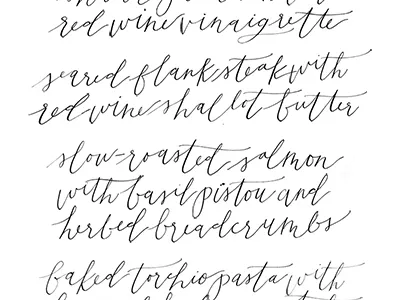 red wine vinaigrette
seared flank steak with
red wine shallot butter
slow-roasted salmon
with basil pistou and
herbed breadcrumbs
baked torchio pasta with